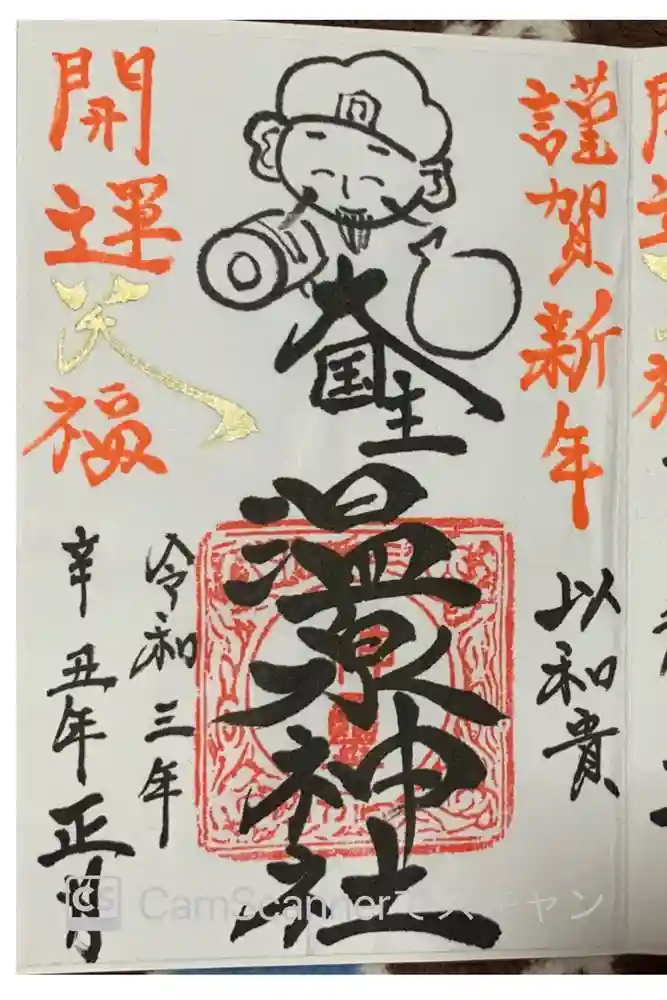 謹賀新年
以和貴
大国主
温泉神社
開運
笑
福
令和三年
辛丑年正月
CS CamScannerでスキャン